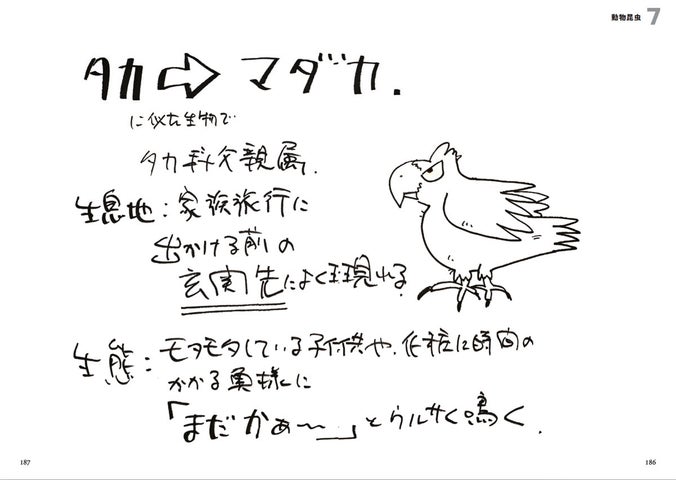 動物昆虫 7
タカ⇨マダカ.
に似た生物で
タカ科父親属.
生息地:家族旅行に
出かける前の
玄関先によく現れる
生態:モタモタしている子供や、化粧に時間の
かかる奥様に
「まだかぁ〜」とウルサく鳴く.
187
186